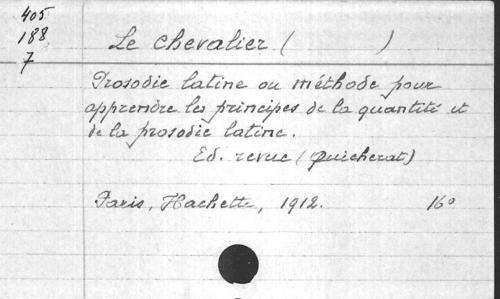 405
188
7
Le chevalier ( )
Prosodie latine ou méthode pour
apprendre les principes de la quantité et
de la prosodie latine.
Ed. revue (Quicherat)
Paris, Hachette, 1912. 16°